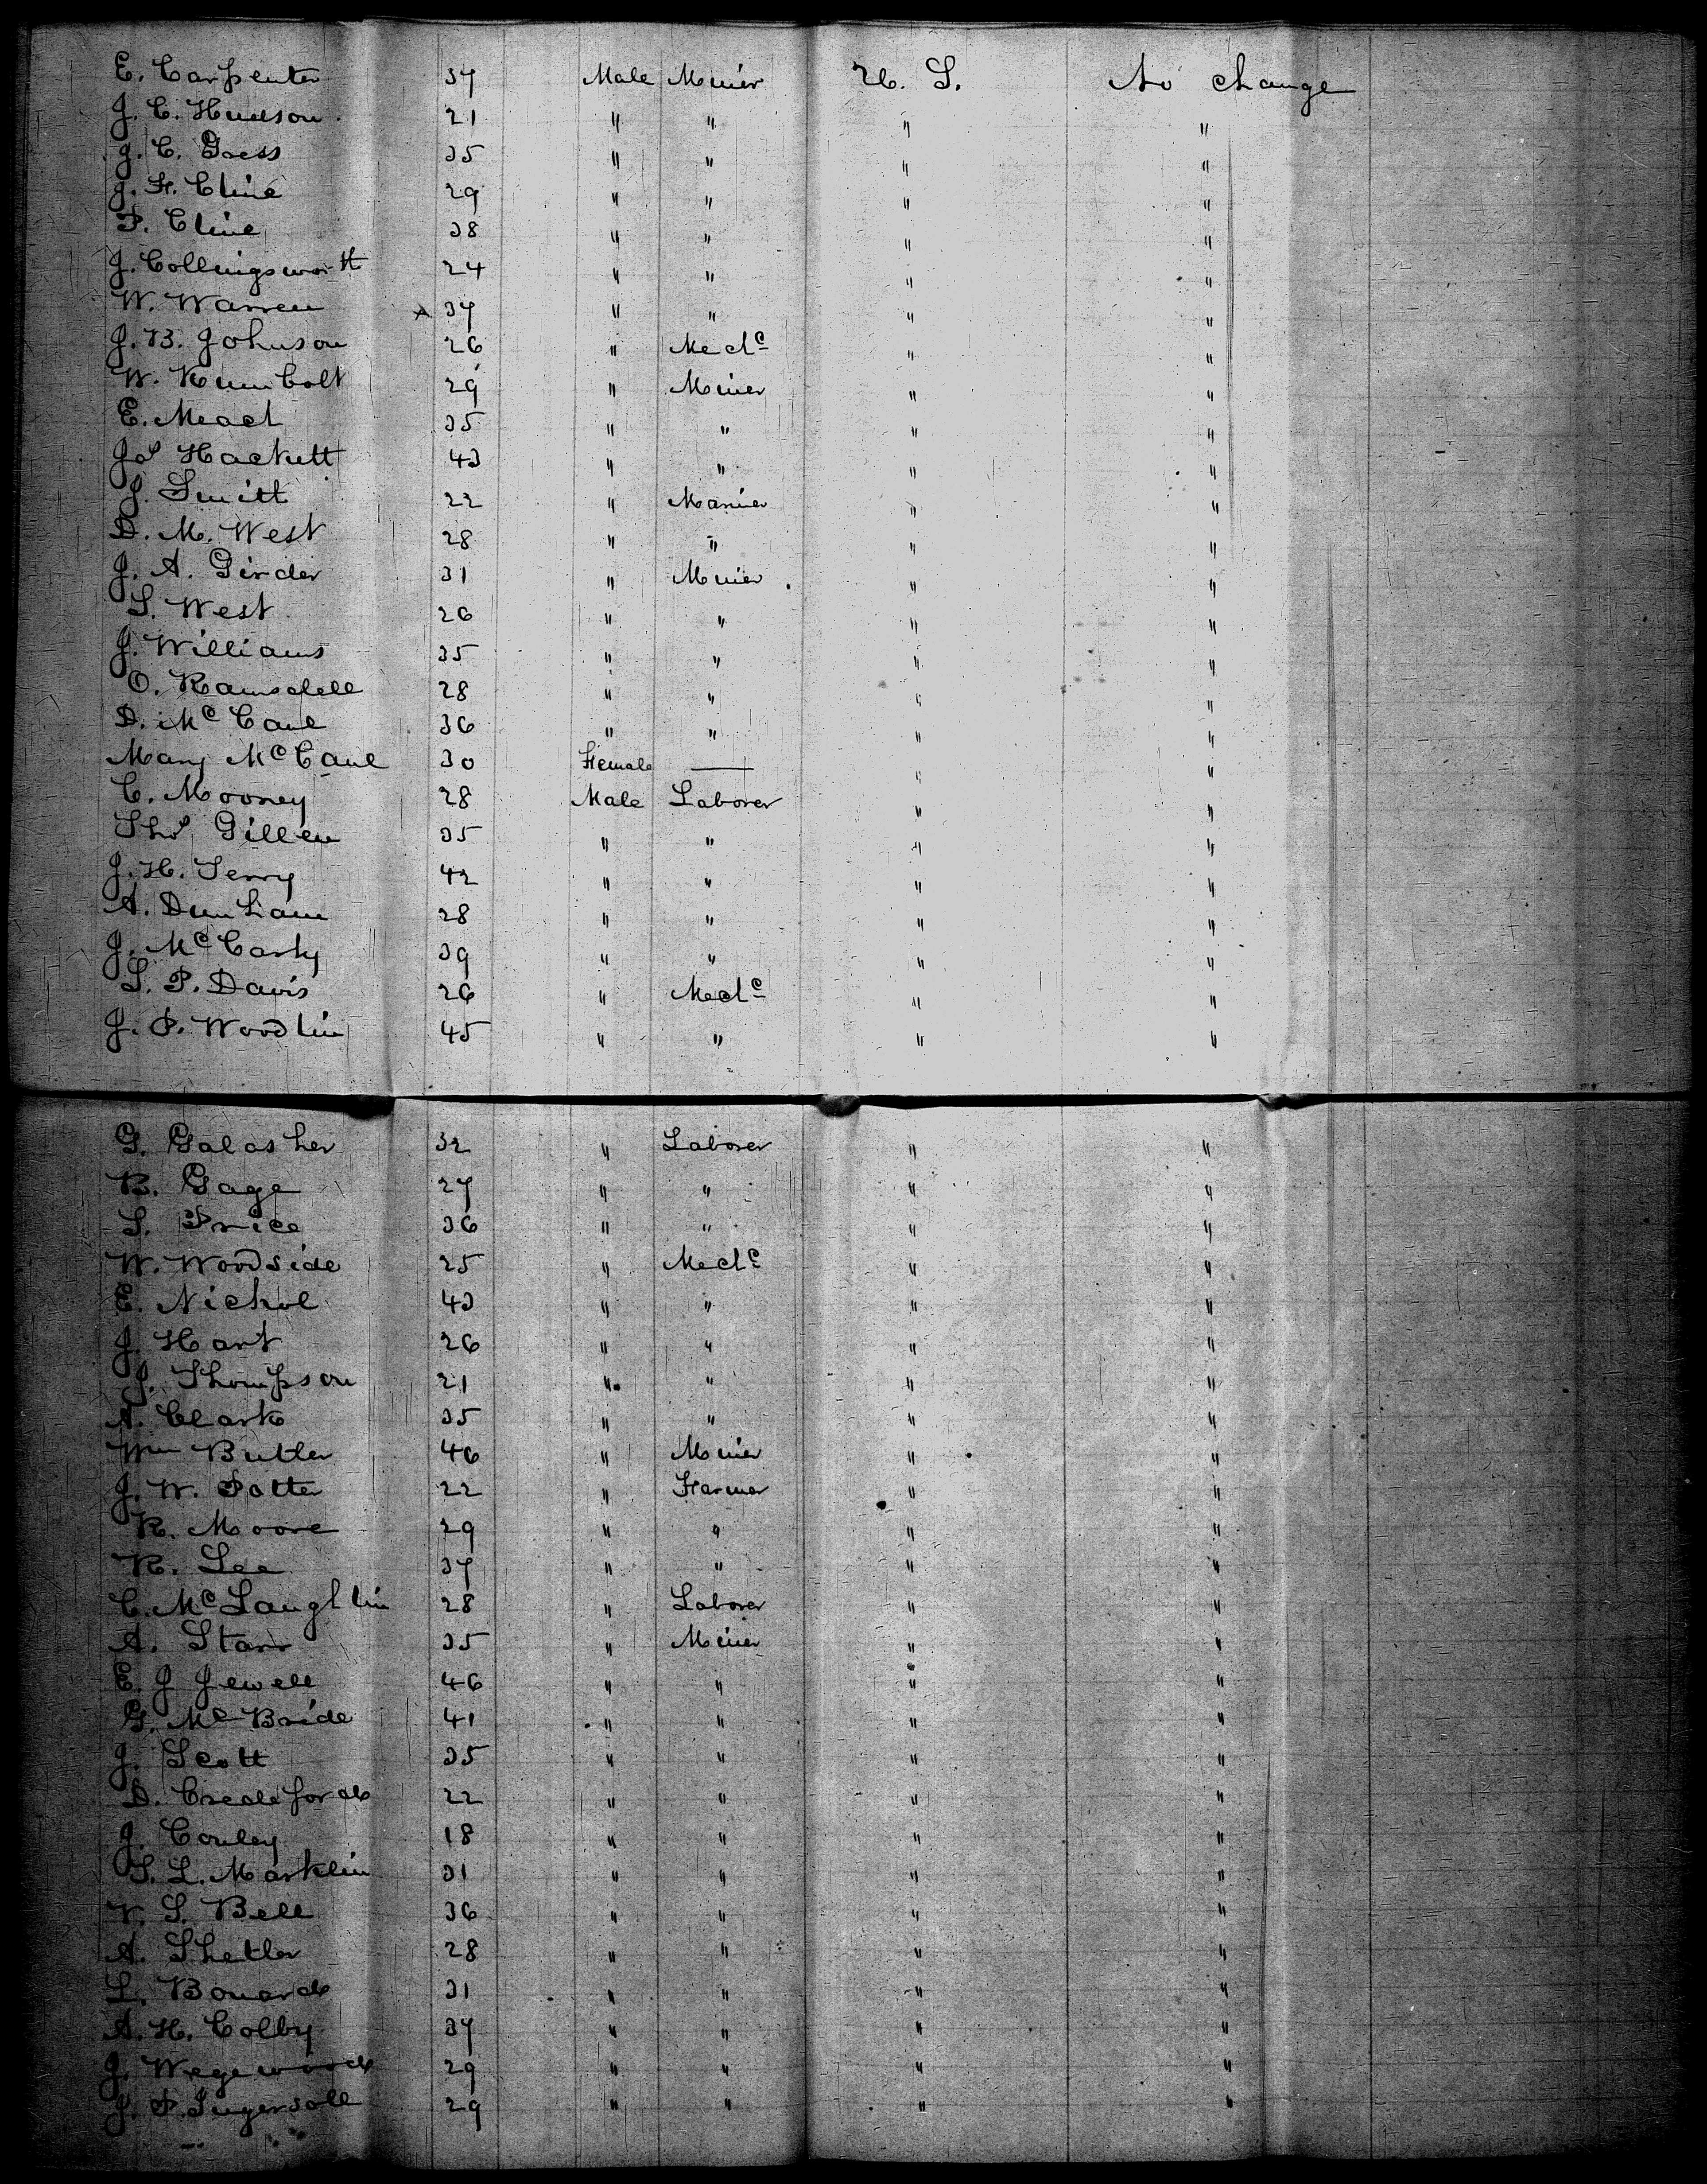 E. Carpenter 37 Male Miner U. S. No change
J. C. Hudson 21 " " " "
J. C. Goess 35 " " " "
J. F. Cline 29 " " " "
P. Cline 38 " " " "
J. Collingsworth 24 " " " "
W. Warren 37 " " " "
J. B. Johnson 26 " Mechc " "
W. Rumbolt 29 " Miner " "
E. Meach 35 " " " "
Jos Hackett 43 " " " "
J. Smith 22 " Marine " "
D. M. West 28 " " " "
J. A. Girder 31 " Miner " "
S. West 26 " " " "
J. Williams 35 " " " "
O. Ramsdell 28 " " " "
D. McCaul 36 " " " "
Mary McCaul 30 Female — " "
C. Mooney 28 Male Laborer " "
Thos Gillen 35 " " " "
J. H. Terry 42 " " " "
A. Dunham 28 " " " "
J. McCarty 39 " " " "
S. P. Davis 26 " Mechc " "
J. P. Woodlin 45 " " " "
G. Galasher 32 " Laborer " "
B. Gage 27 " " " "
S. Price 36 " " " "
W. Woodside 25 " Mechc " "
E. Nichol 43 " " " "
J. Hart 26 " " " "
J. Thompson 21 " " " "
A. Clark 35 " " " "
Wm Butler 46 " Miner " "
J. W. Potter 22 " Farmer " "
R. Moore 29 " " " "
R. Lee 37 " " " "
C. McLaughlin 28 " Laborer " "
A. Starr 35 " Miner " "
E. J Jewell 46 " " " "
G. McBride 41 " " " "
J. Scott 35 " " " "
D. Creadeford 22 " " " "
J. Conley 18 " " " "
S. L. Marklin 31 " " " "
V. S. Bell 36 " " " "
A. Shetler 28 " " " "
L. Bonard 31 " " " "
A. H. Colby 37 " " " "
J. Wegewood 29 " " " "
J. P. Ingersoll 29 " " " "